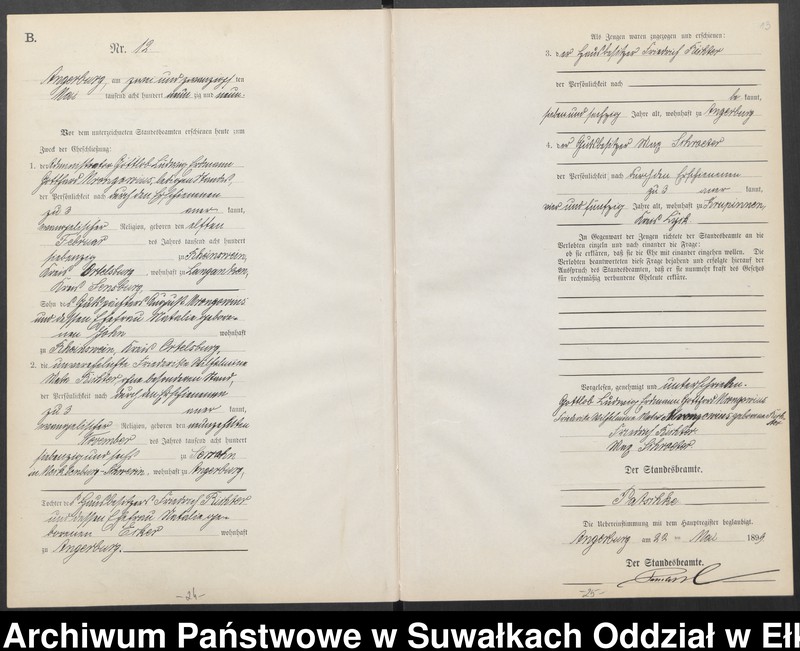 B.
Nr. 12
Angerburg, am zwei und zwanzigsten
Mai tausend acht hundert neun zig und neun.
Vor dem unterzeichneten Standesbeamten erschienen heute zum
Zweck der Eheschließung:
1. der Administrator Gottlob Ludwig Erdmann
Gotthard Wrongowius, ledigen Standes,
der Persönlichkeit nach durch den Erschienenen
zu 3 aner kannt,
evangelischer Religion, geboren den elften
Februar des Jahres tausend acht hundert
siebenzig zu
Kreis Ortelsburg, wohnhaft zu Langanken,
Kreis Sensburg
Sohn des Gutspächters August Wrongowius
und dessen Ehefrau Natalie gebore-
nen John wohnhaft
zu Kreis Ortelsburg,
2. die unverehelichte Friederike Wilhelmine
Richter, ohne besonderen Stand,
der Persönlichkeit nach durch den Erschienenen
zu 3 aner kannt,
evangelischer Religion, geboren den neunzehnten
November des Jahres tausend acht hundert
siebenzig und sechs zu Serrahn
in Mecklenburg-Schwerin, wohnhaft zu Angerburg,
Tochter des Hausbesitzers Friedrich Richter
und dessen Ehefrau Natalie ge-
borenen Erker wohnhaft
zu Angerburg.
-24-
13
Als Zeugen waren zugezogen und erschienen:
3. der Hausbesitzer Friedrich Richter
der Persönlichkeit nach
be kannt,
sieben und sechzig Jahre alt, wohnhaft zu Angerburg
4. der Gutsbesitzer Max Schroeter
der Persönlichkeit nach durch den Erschienenen
zu 3 aner kannt,
vier und fünfzig Jahre alt, wohnhaft zu Krupinnen,
Kreis Lyck
In Gegenwart der Zeugen richtete der Standesbeamte an die
Verlobten einzeln und nach einander die Frage:
ob sie erklären, daß sie die Ehe mit einander eingehen wollen. Die
Verlobten beantworteten diese Frage bejahend und erfolgte hierauf der
Ausspruch des Standesbeamten, daß er sie nunmehr kraft des Gesetzes
für rechtmäßig verbundene Eheleute erkläre.
Vorgelesen, genehmigt und unterschrieben.
Gottlob Ludwig Erdmann Gotthard Wrongowius
Friederike Wilhelmine Wrongowius geborene Rich-
ter
Friedrich Richter
Max Schroeter
Der Standesbeamte.
Ratschke
Die Uebereinstimmung mit dem Hauptregister beglaubigt.
Angerburg am 22 ten Mai 1899
Der Standesbeamte.
-25-
Archiwum Państwowe w Suwałkach Oddział w Ełk